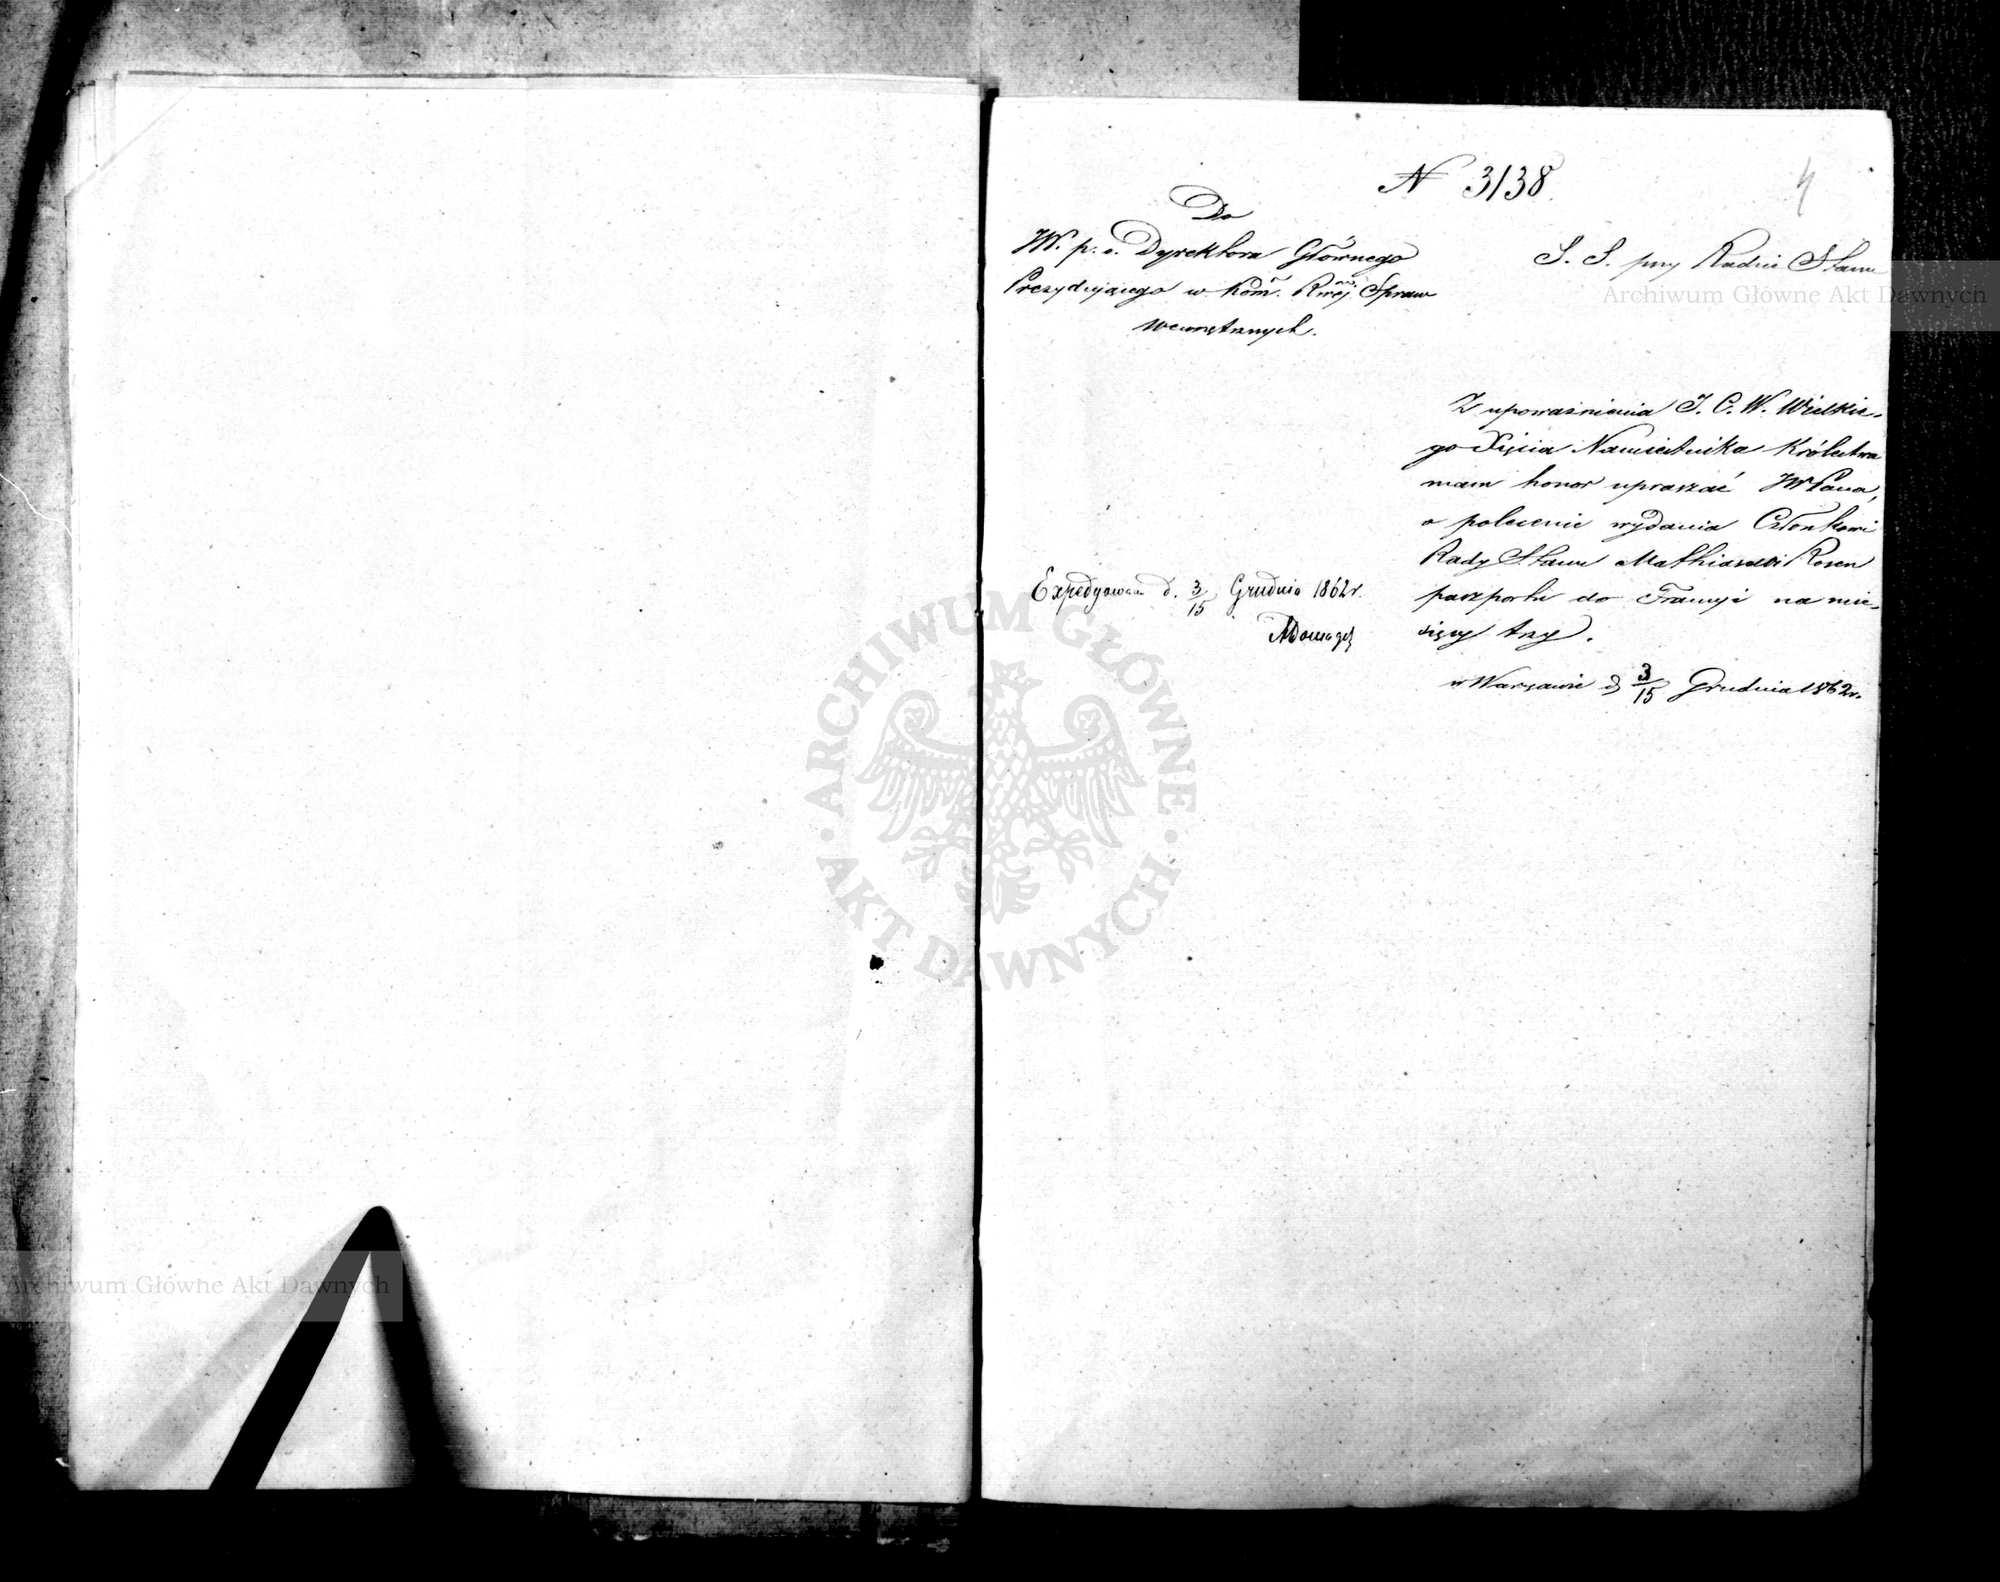 N 3138.
4
Do
JW. p. o. Dyrektora Głównego
Prezydującego w Kom. Rząej Spraw
Wewnętrznych.
S. S. przy Radzie Stanu
Z upoważnienia J. C. W. Wielkie-
go Xięcia Namiestnika Królestwa
mam honor upraszać JWPana,
o polecenie wydania Członkowi
Rady Stanu Mathiasowi Rosen
paszportu do Francyi na mie-
sięcy trzy.
w Warszawie d 3/15 Grudnia 1862 r.
Expedyowano d. 3/15 Grudnia 1862 r.
Archiwum Główne Akt Dawnych
ARCHIWUM GŁÓWNE
AKT DAWNYCH
Archiwum Główne Akt Dawnych